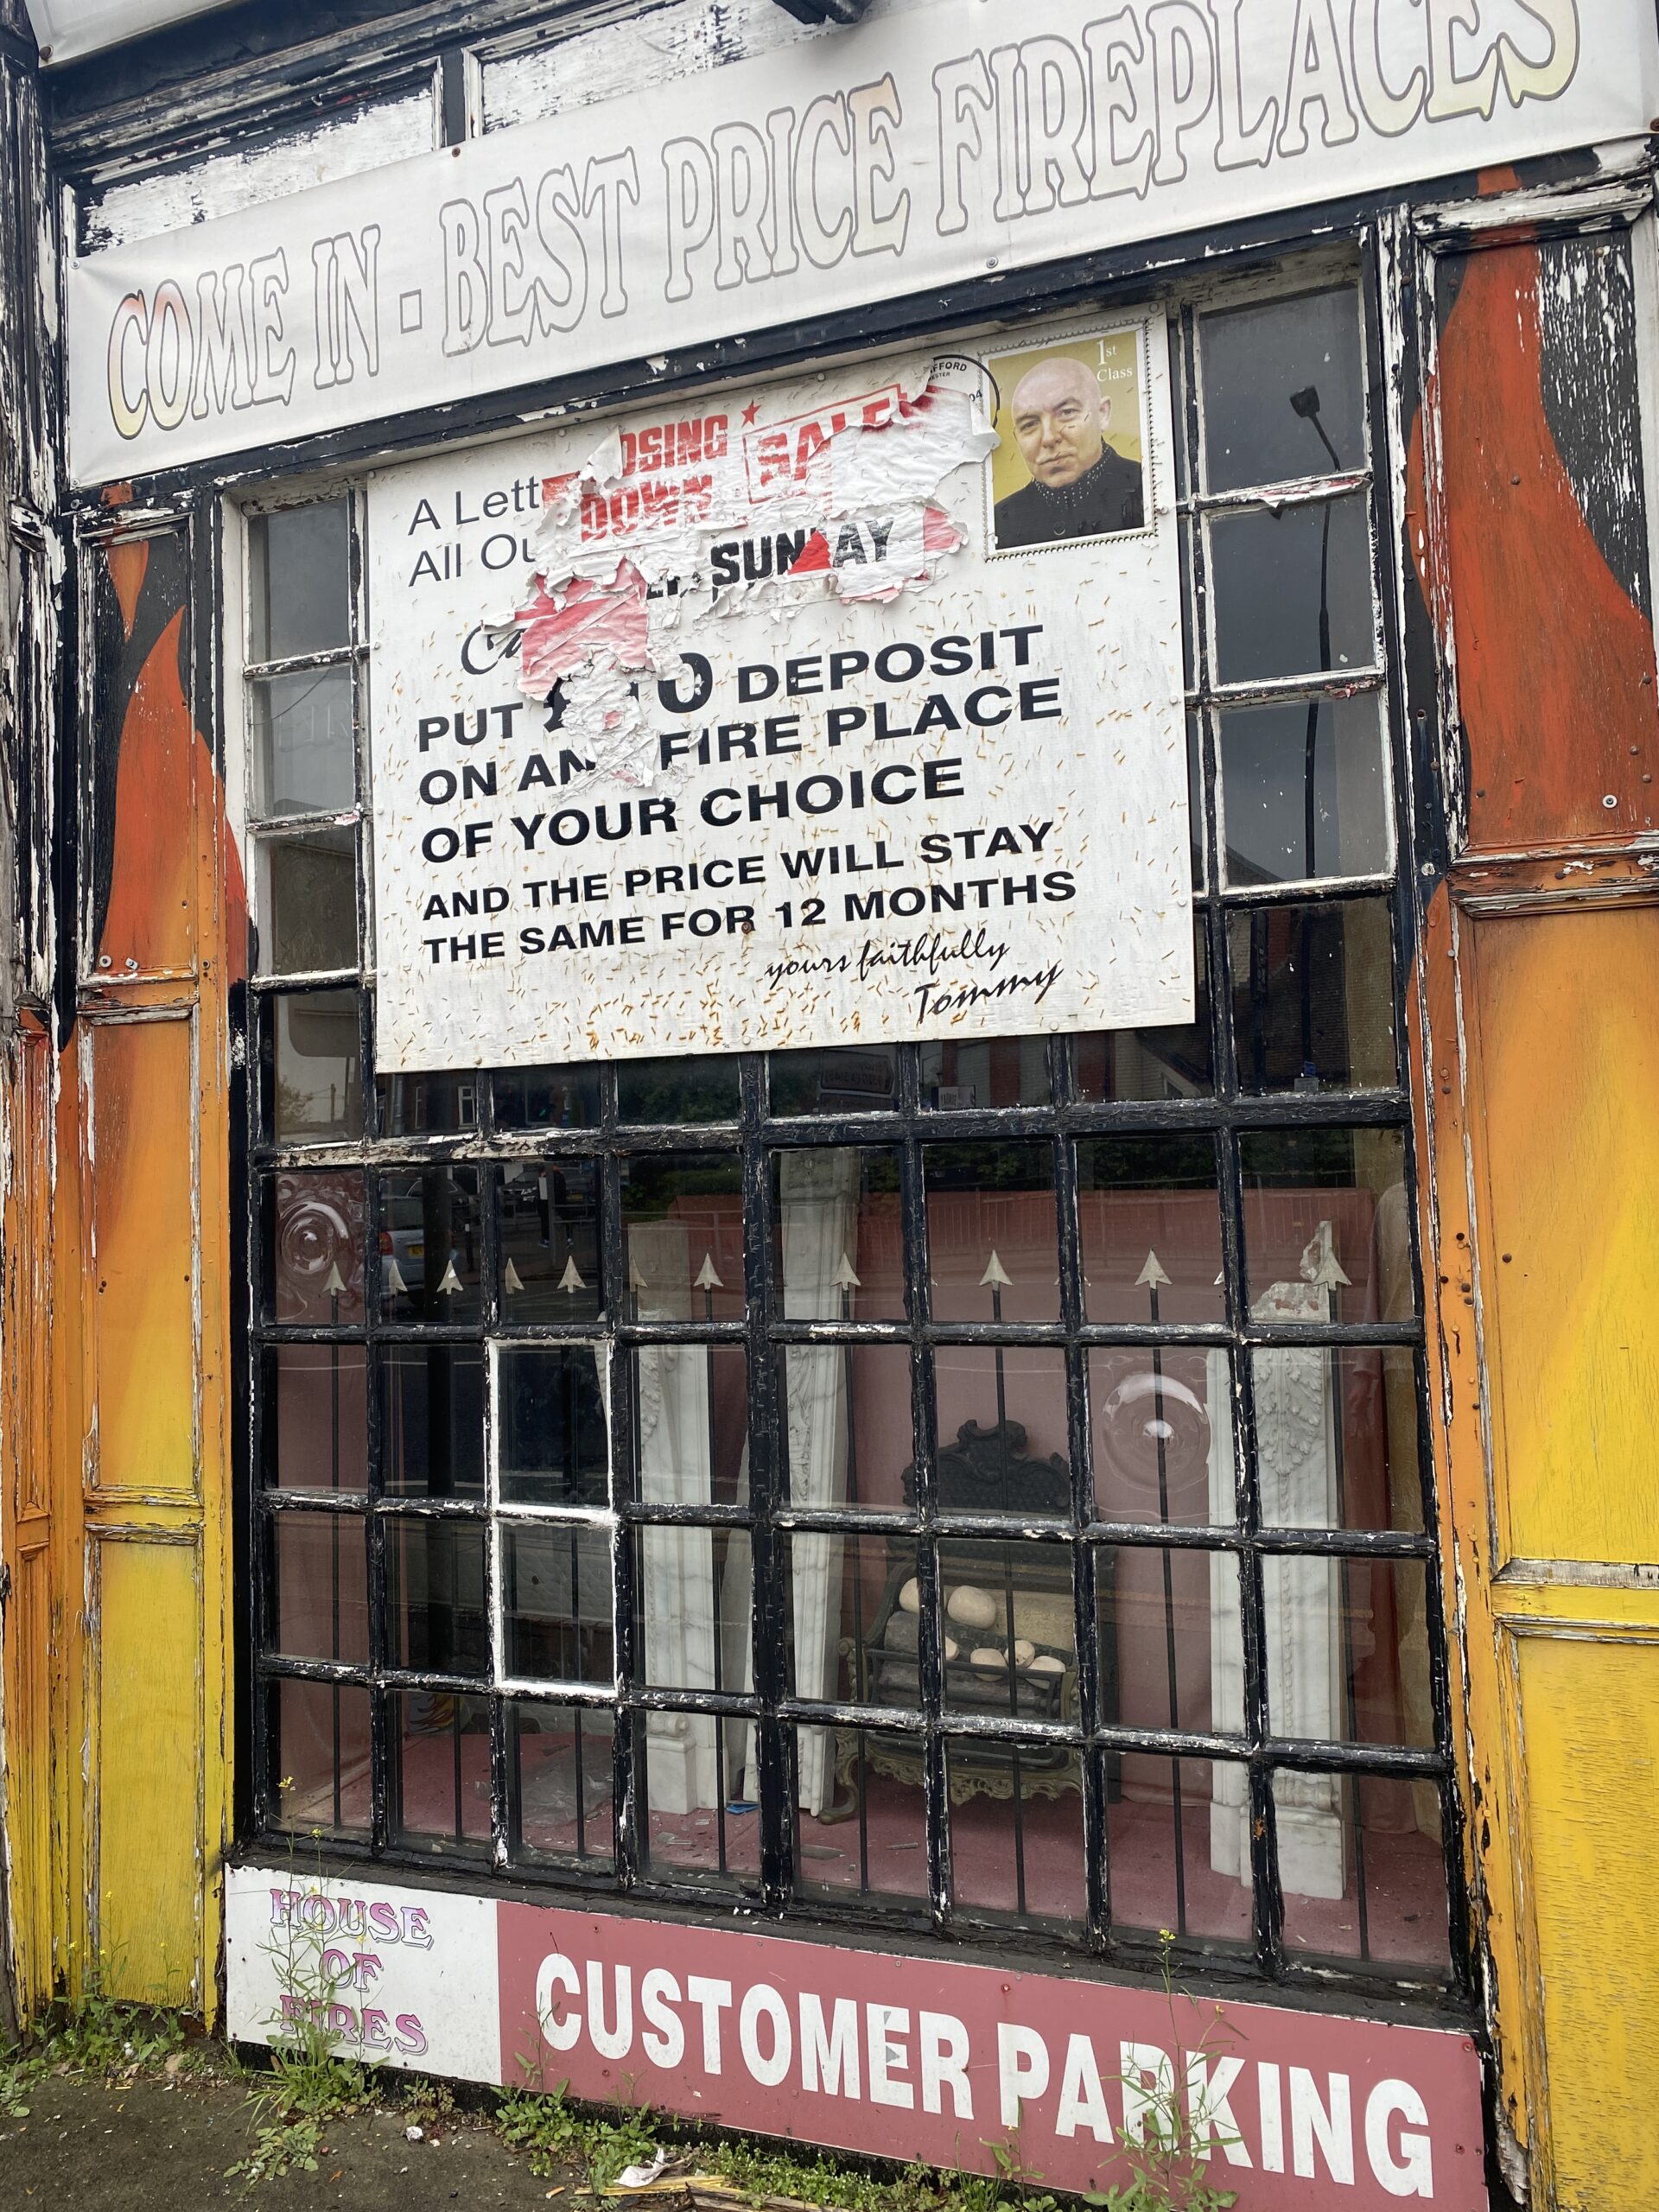 COME IN - BEST PRICE FIREPLACES
1st
Class
OSING
DOWN
SALE
SUN AY
A Lett
All Ou
PUT 0 DEPOSIT
ON AN FIRE PLACE
OF YOUR CHOICE
AND THE PRICE WILL STAY
THE SAME FOR 12 MONTHS
yours faithfully
Tommy
HOUSE
OF
FIRES
CUSTOMER PARKING